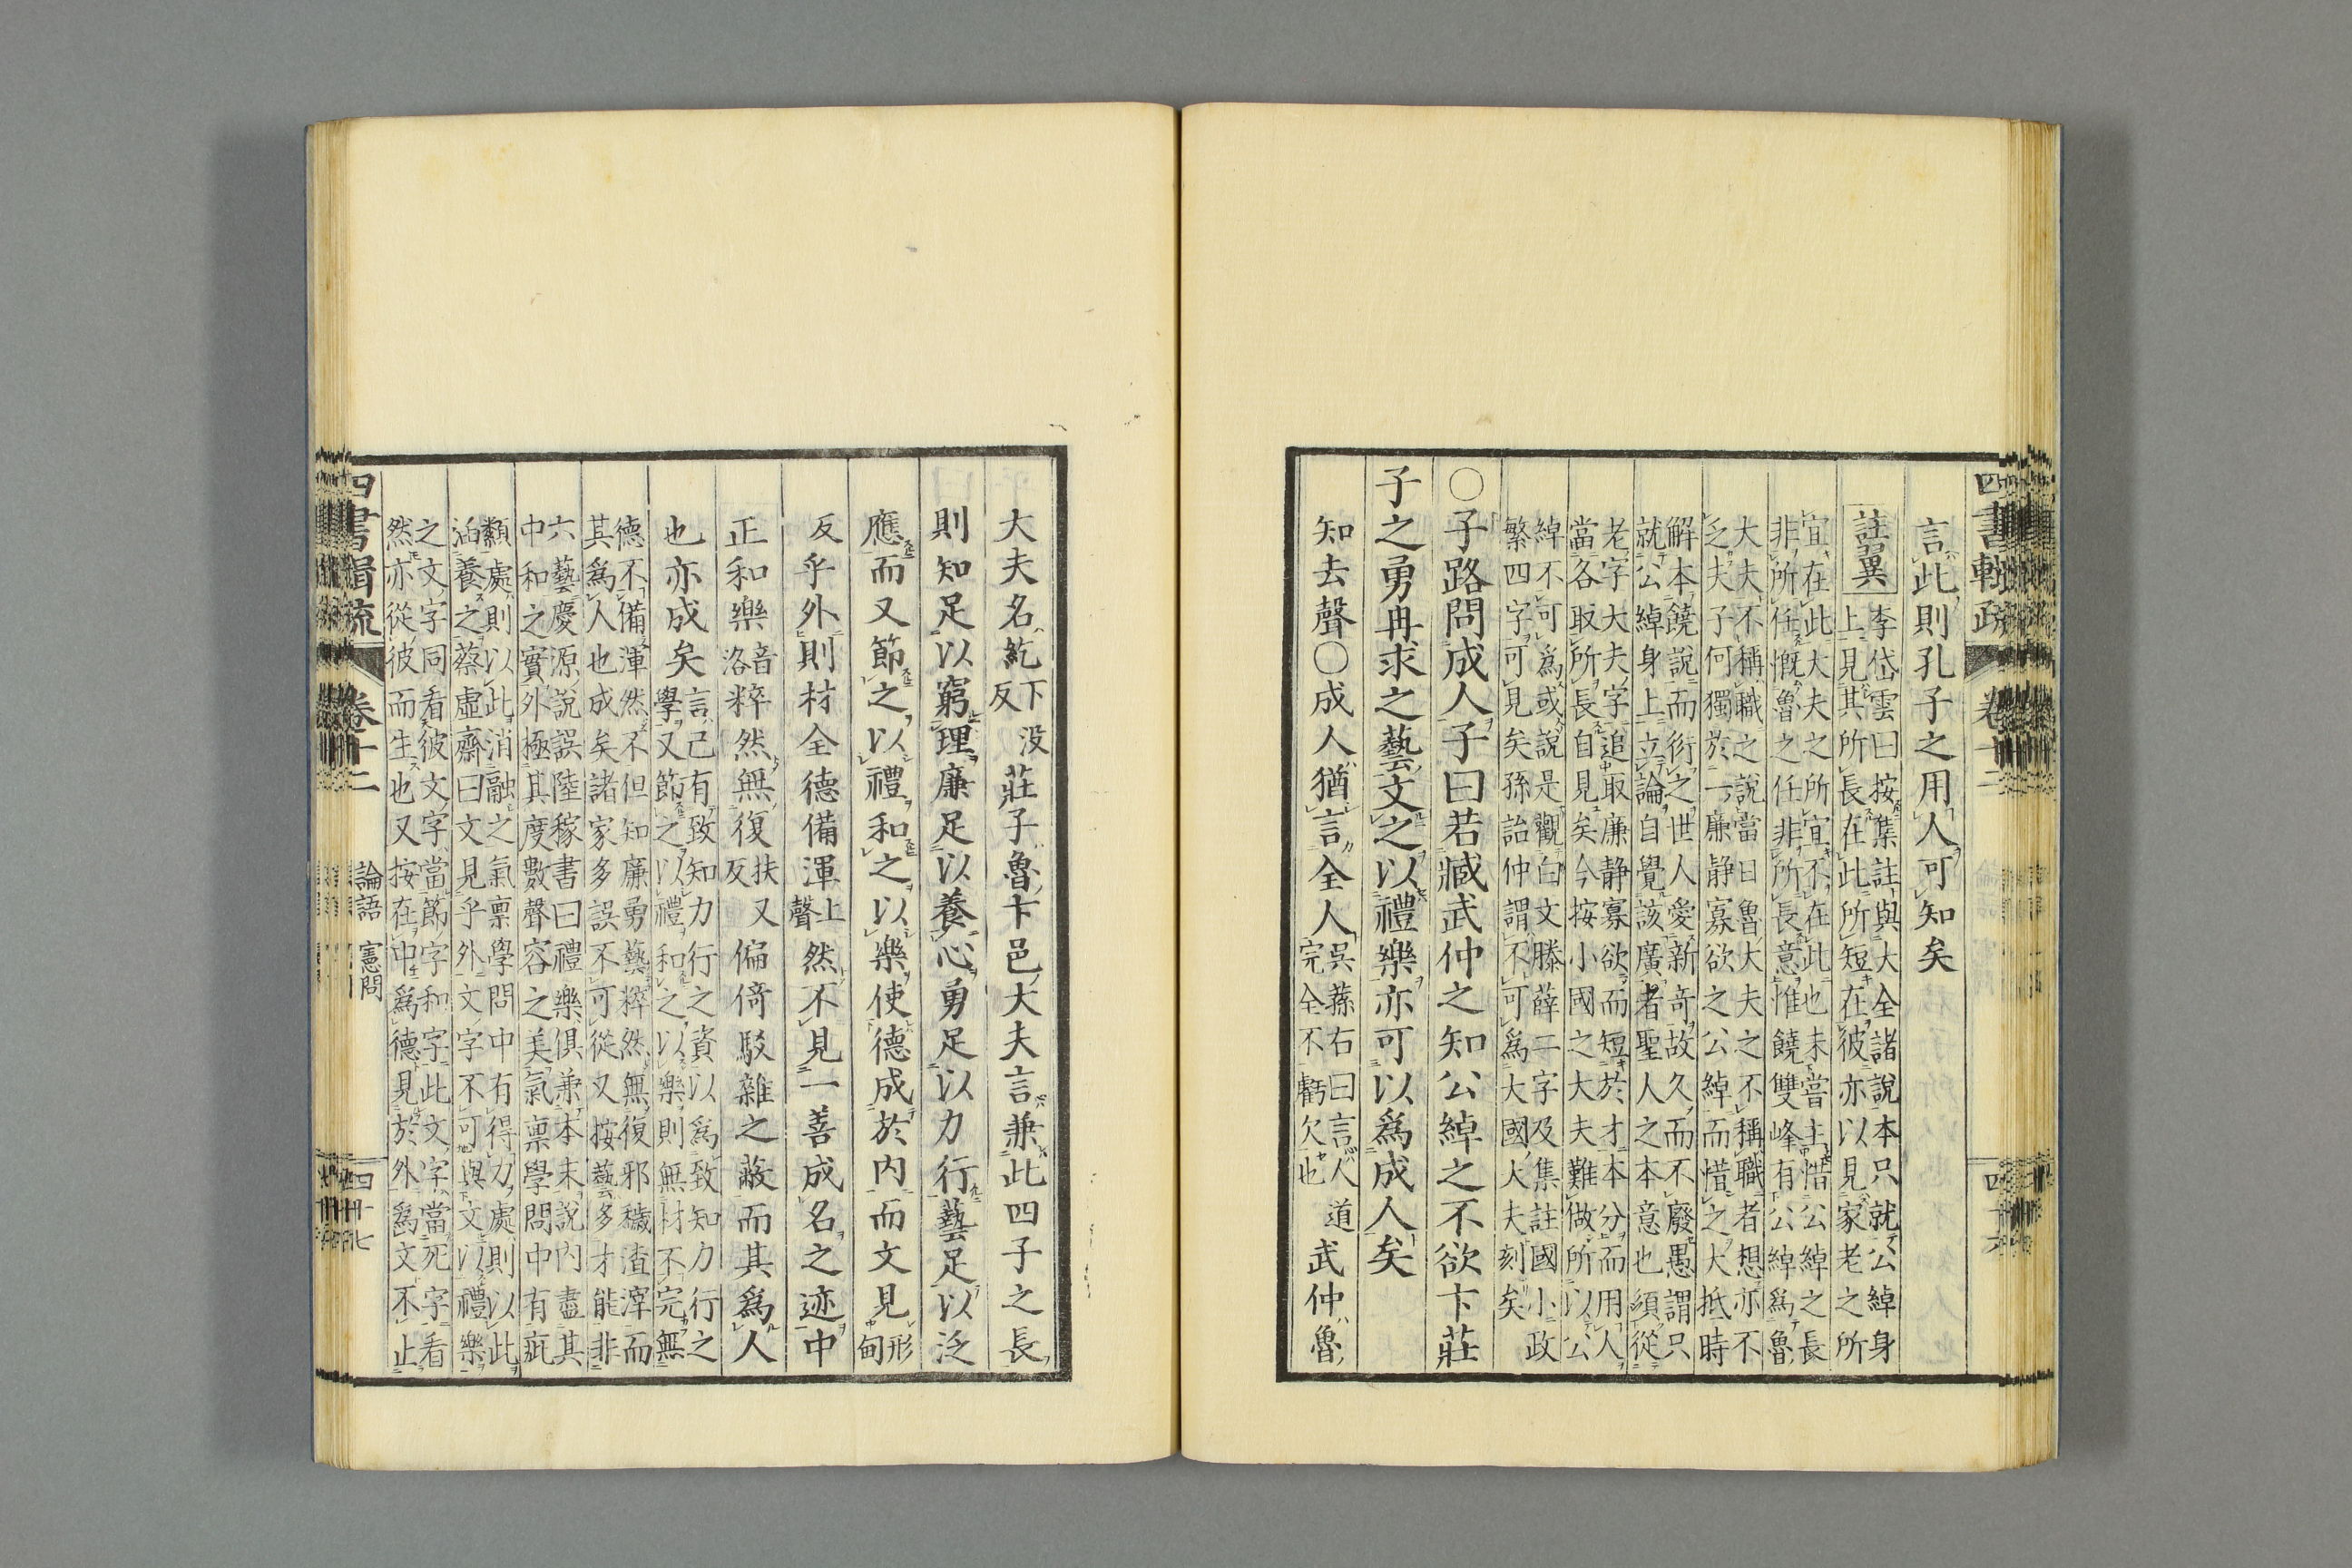 四書輯疏
卷十二
四十六
言此則孔子之用人可知矣
註異
李岱雲曰按集註與大全諸說本只就公綽身
上見其所長在此所短在彼亦以見家老之所
宜在此大夫之所宜不在此也未嘗主惜公綽之長
非所任慨魯之任非所長意惟饒雙峰有公綽爲魯
大夫不稱職之說當日魯大夫之不稱職者想亦不
乏夫子何獨於一廉静寡欲之公綽而惜之大抵時
解本饒說而衍之世人愛新竒故久而不廢愚謂只
就公綽身上立論自覺該廣者聖人之本意也須從
老字大夫字追取廉静寡欲而短於才本分而用人
當各取所長自見矣今按小國之大夫難做所以公
綽不可爲或說是觀白文滕薛二字及集註國小政
繁四字可見矣孫詒仲謂不可爲大國大夫刻矣
○子路問成人子曰若臧武仲之知公綽之不欲卞莊
子之勇冉求之藝文之以禮樂亦可以爲成人矣
知去聲○成人猶言全人
吳蓀右曰言人道
完全不虧欠也
武仲魯
大夫名紇
下没
反
莊子魯卞邑大夫言兼此四子之長
則知足以窮理廉足以養心勇足以力行藝足以泛
應而又節之以禮和之以樂使德成於内而文見
形
甸
反乎外則材全德備渾
上
聲
然不見一善成名之迹中
正和樂
音
洛
粹然無復
扶又
反
偏倚駁雜之蔽而其爲人
也亦成矣
言己有致知力行之資以爲致知力行之
學又節之以禮和之以樂則無材不完無
德不備渾然不但知廉勇藝粹然無復邪穢渣滓而
其爲人也成矣諸家多誤不可從又按藝多才能非
六藝慶源說誤陸稼書曰禮樂俱兼本末說内盡其
中和之實外極其度數聲容之美氣禀學問中有疵
纇處則以此消融之氣禀學問中有得力處則以此
涵養之蔡虛齋曰文見乎外文字不可與文以禮樂
之文字同看彼文字當節字和字此文字當死字看
然亦從彼而生也又按在中爲德見於外爲文不止
四書輯疏
卷十二
論語 憲問
四十七